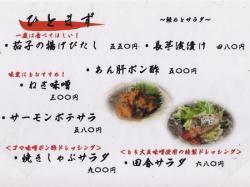 ひとまず
〜軽めとサラダ〜
一度は食べてほしい!
・茄子の揚げびたし 五五〇円
・長芋浪漬け 四八〇円
・あん肝ポン酢 五五〇円
味変にもおすすめ!
・ねぎ味噌
三〇〇円
・サーモンポテサラ
五八〇円
<ゴマ味噌ポン酢ドレッシング>
・焼きしゃぶサラダ
九〇〇円
<もち大豆味噌使用の特製ドレッシング>
・田舎サラダ 六八〇円